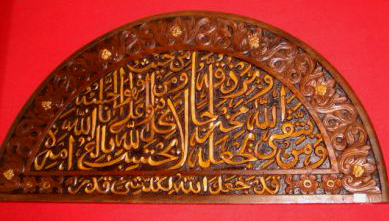 ومن يتق الله يجعل له مخرجا ويرزقه من حيث لا يحتسب ومن يتوكل على الله فهو حسبه إن الله بالغ أمره
قد جعل الله لكل شيء قدرا